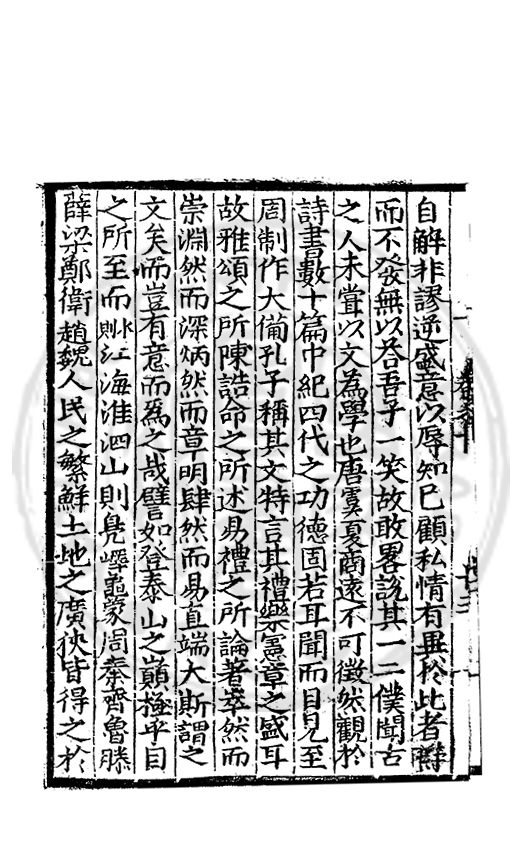 自解非謬逆盛意以辱知已顧私情有異於此者辭
而不發無以荅吾子一笑故敢畧說其一二僕聞古
之人未嘗以文為學也唐虞夏商遠不可徵然觀於
詩書數十篇中紀四代之功德固若耳聞而目見至
周制作大備孔子稱其文特言其禮樂憲章之盛耳
故雅頌之所陳誥命之所述易禮之所論著萃然而
崇淵然而深炳然而章明肆然而易直端大斯謂之
文矣而豈有意而為之哉譬如登泰山之巔極乎目
之所至而眺江海淮泗山則鳧嶧龜蒙周秦齊魯滕
薛梁鄭衛趙魏人民之繁鮮土地之廣狹皆得之於